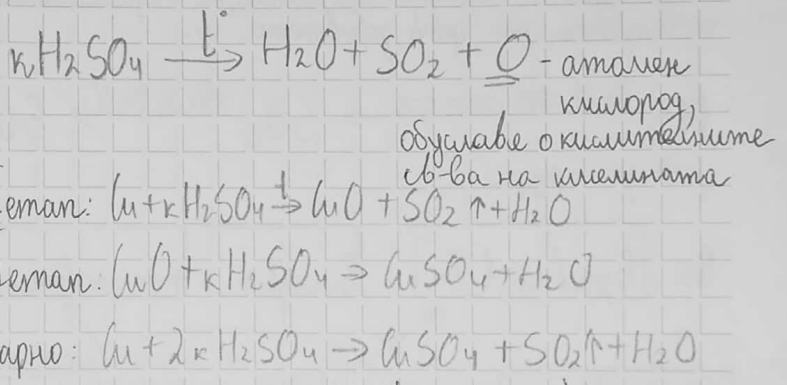 кH2SO4 —t°→ H2O + SO2 + O - атомен
кислород,
обуславе окислителните
св-ва на киселината
етап: Cu + кH2SO4 —t→ CuO + SO2↑ + H2O
етап: CuO + кH2SO4 → CuSO4 + H2O
арно: Cu + 2кH2SO4 → CuSO4 + SO2↑ + H2O